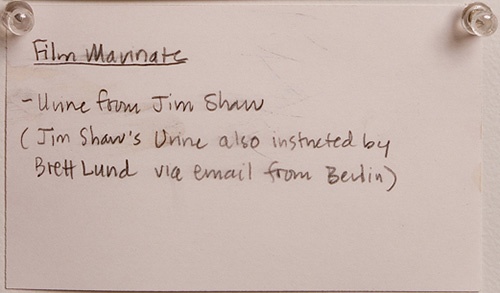 Film Marinate
- Urine from Jim Shaw
(Jim Shaw's Urine also instructed by
Brett Lund via email from Berlin)